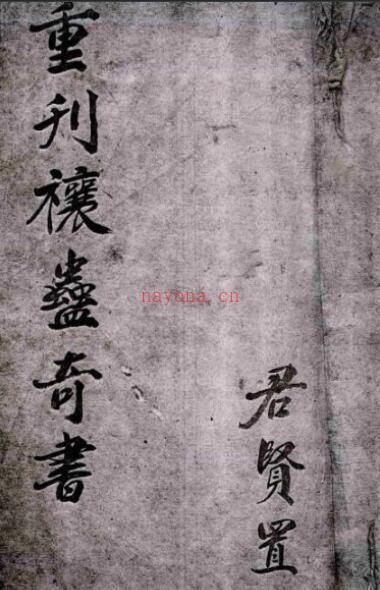 重刊禳蠱奇書
君賢置
nayona.cn